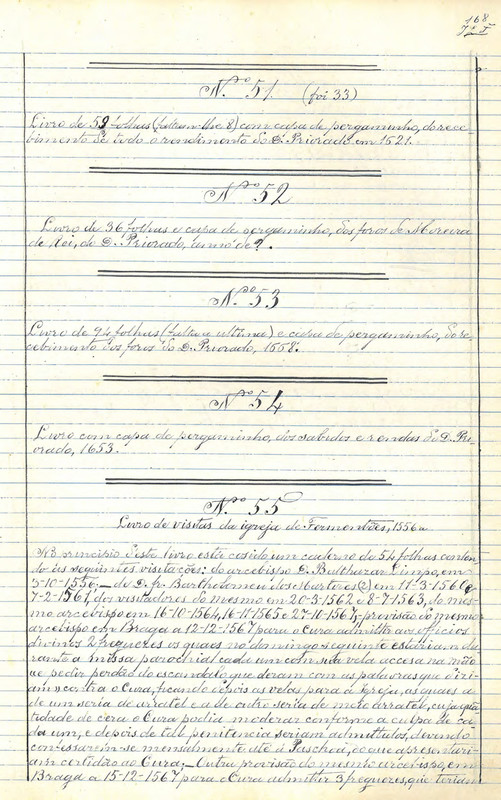 168
Nº 51. (foi 33)
Livro de 59 folhas (faltam-lhe 8) com capa de pergaminho, do rece-
bimento de todo o rendimento do D. Priorado em 1521.
Nº 52
Livro de 36 folhas e capa de pergaminho, dos foros de Moreira
de Rei, do D. Priorado, anno de ?.
Nº 53
Livro de 94 folhas (falta a ultima) e capa de pergaminho, do re-
cebimento dos foros do D. Priorado, 1558.
Nº 54
Livro com capa de pergaminho, dos sabidos e rendas do D. Pri-
orado, 1653.
Nº 55
Livro de visitas da igreja de Fermentões, 1556 a
No principio d'este livro está cosido um caderno de 54 folhas conten-
do as seguintes visitações: do arcebispo D. Balthazar Limpo, em
3-10-1556; de D. fr. Bartholomeu dos Martyres (2) em 11-3-1560 e
7-2-1561, dos visitadores do mesmo em 20-3-1562 e 8-7-1563, do mes-
mo arcebispo em 16-10-1564, 16-11-1565 e 27-10-1567; provisão do mesmo
arcebispo em Braga a 12-12-1567 para o Cura admittir aos officios
divinos 2 freguezes os quaes no domingo seguinte estariam du-
rante a missa parochial cada um com sua vela accesa na mão
ao pedir perdão do escandalo que deram com as palavras que diri-
giram contra o Cura, ficando depois as velas para a Igreja, as quaes a
de um seria de arratel e a de outro seria de meio arratel, cuja quan-
tidade de cera o Cura podia moderar conforme a culpa de ca-
da um, e depois de tal penitencia seriam admittidos, devendo
confessarem-se mensalmente até á Paschoa, do que apresentari-
am certidão ao Cura; Outra provisão do mesmo arcebispo, em
Braga a 15-12-1567 para o Cura admittir 3 freguezes, que teriam